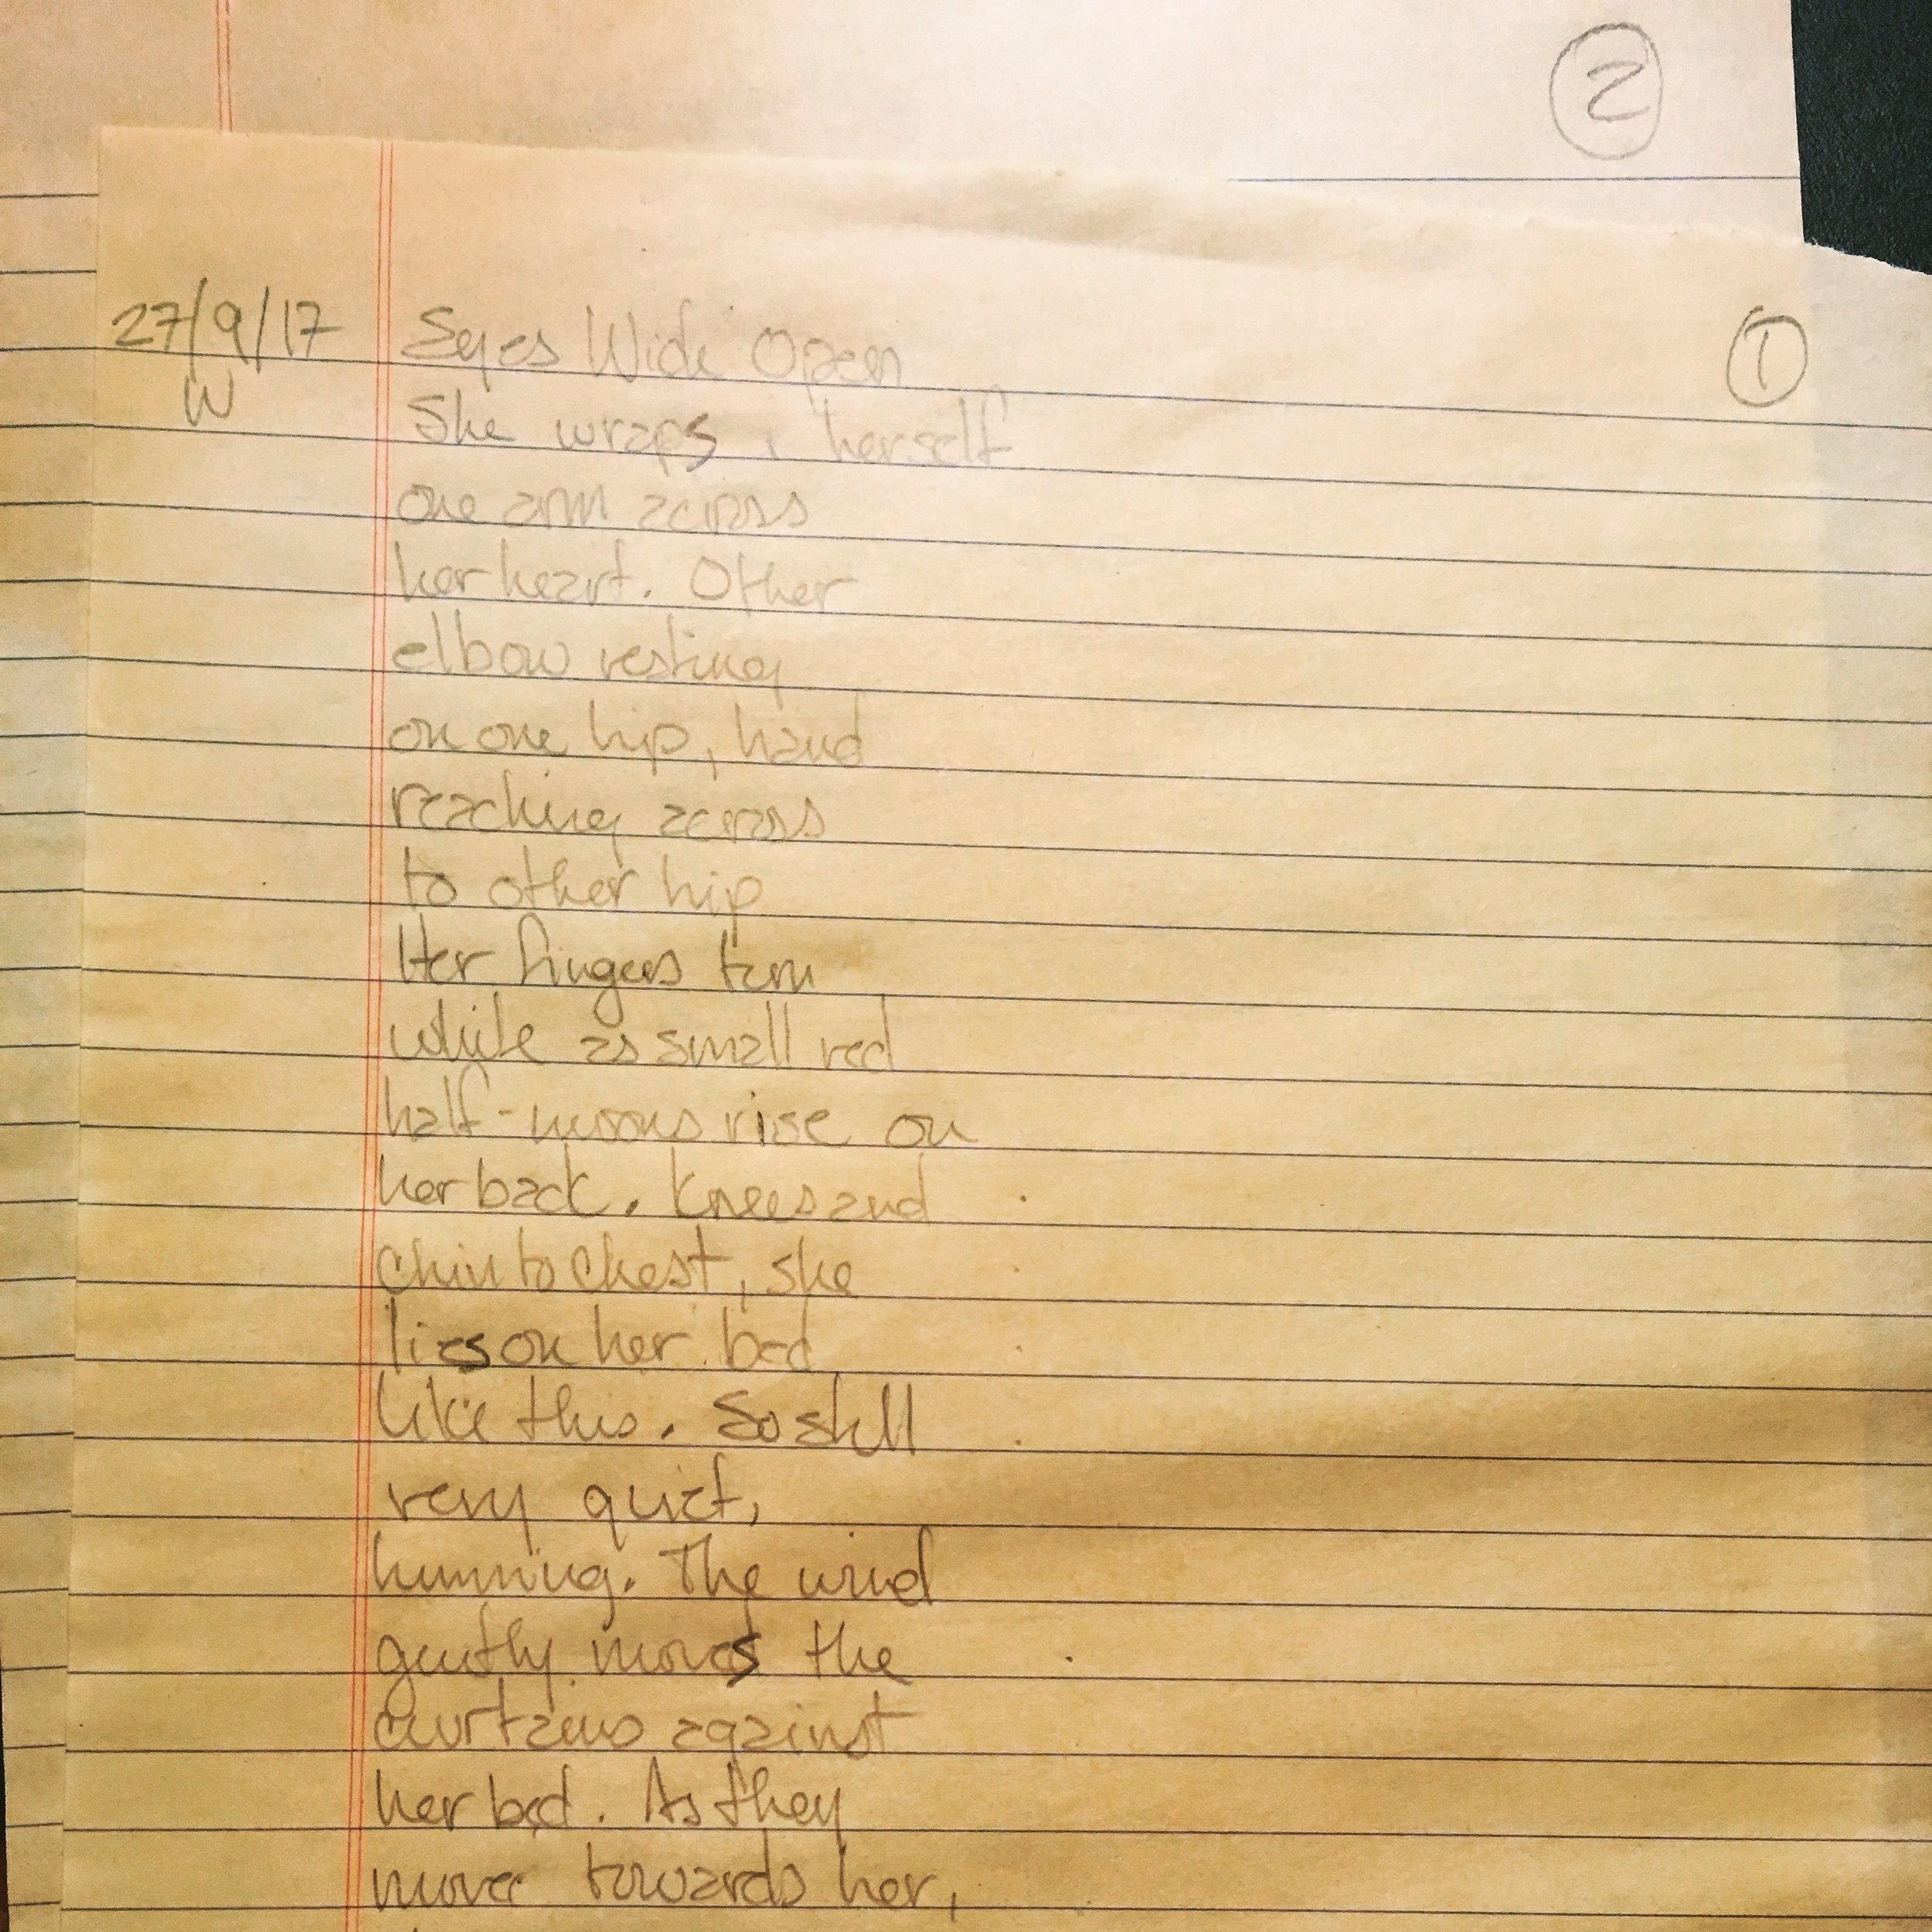 2
27/9/17 Eyes Wide Open 1
W
She wraps herself
one arm across
her heart. Other
elbow resting
on one hip, hand
reaching across
to other hip
Her fingers turn
white as small red
half-moons rise on
her back. Knees and
chin to chest, she
lies on her bed
like this. So still
very quiet,
humming. The wind
gently moves the
curtains against
her bed. As they
move towards her,